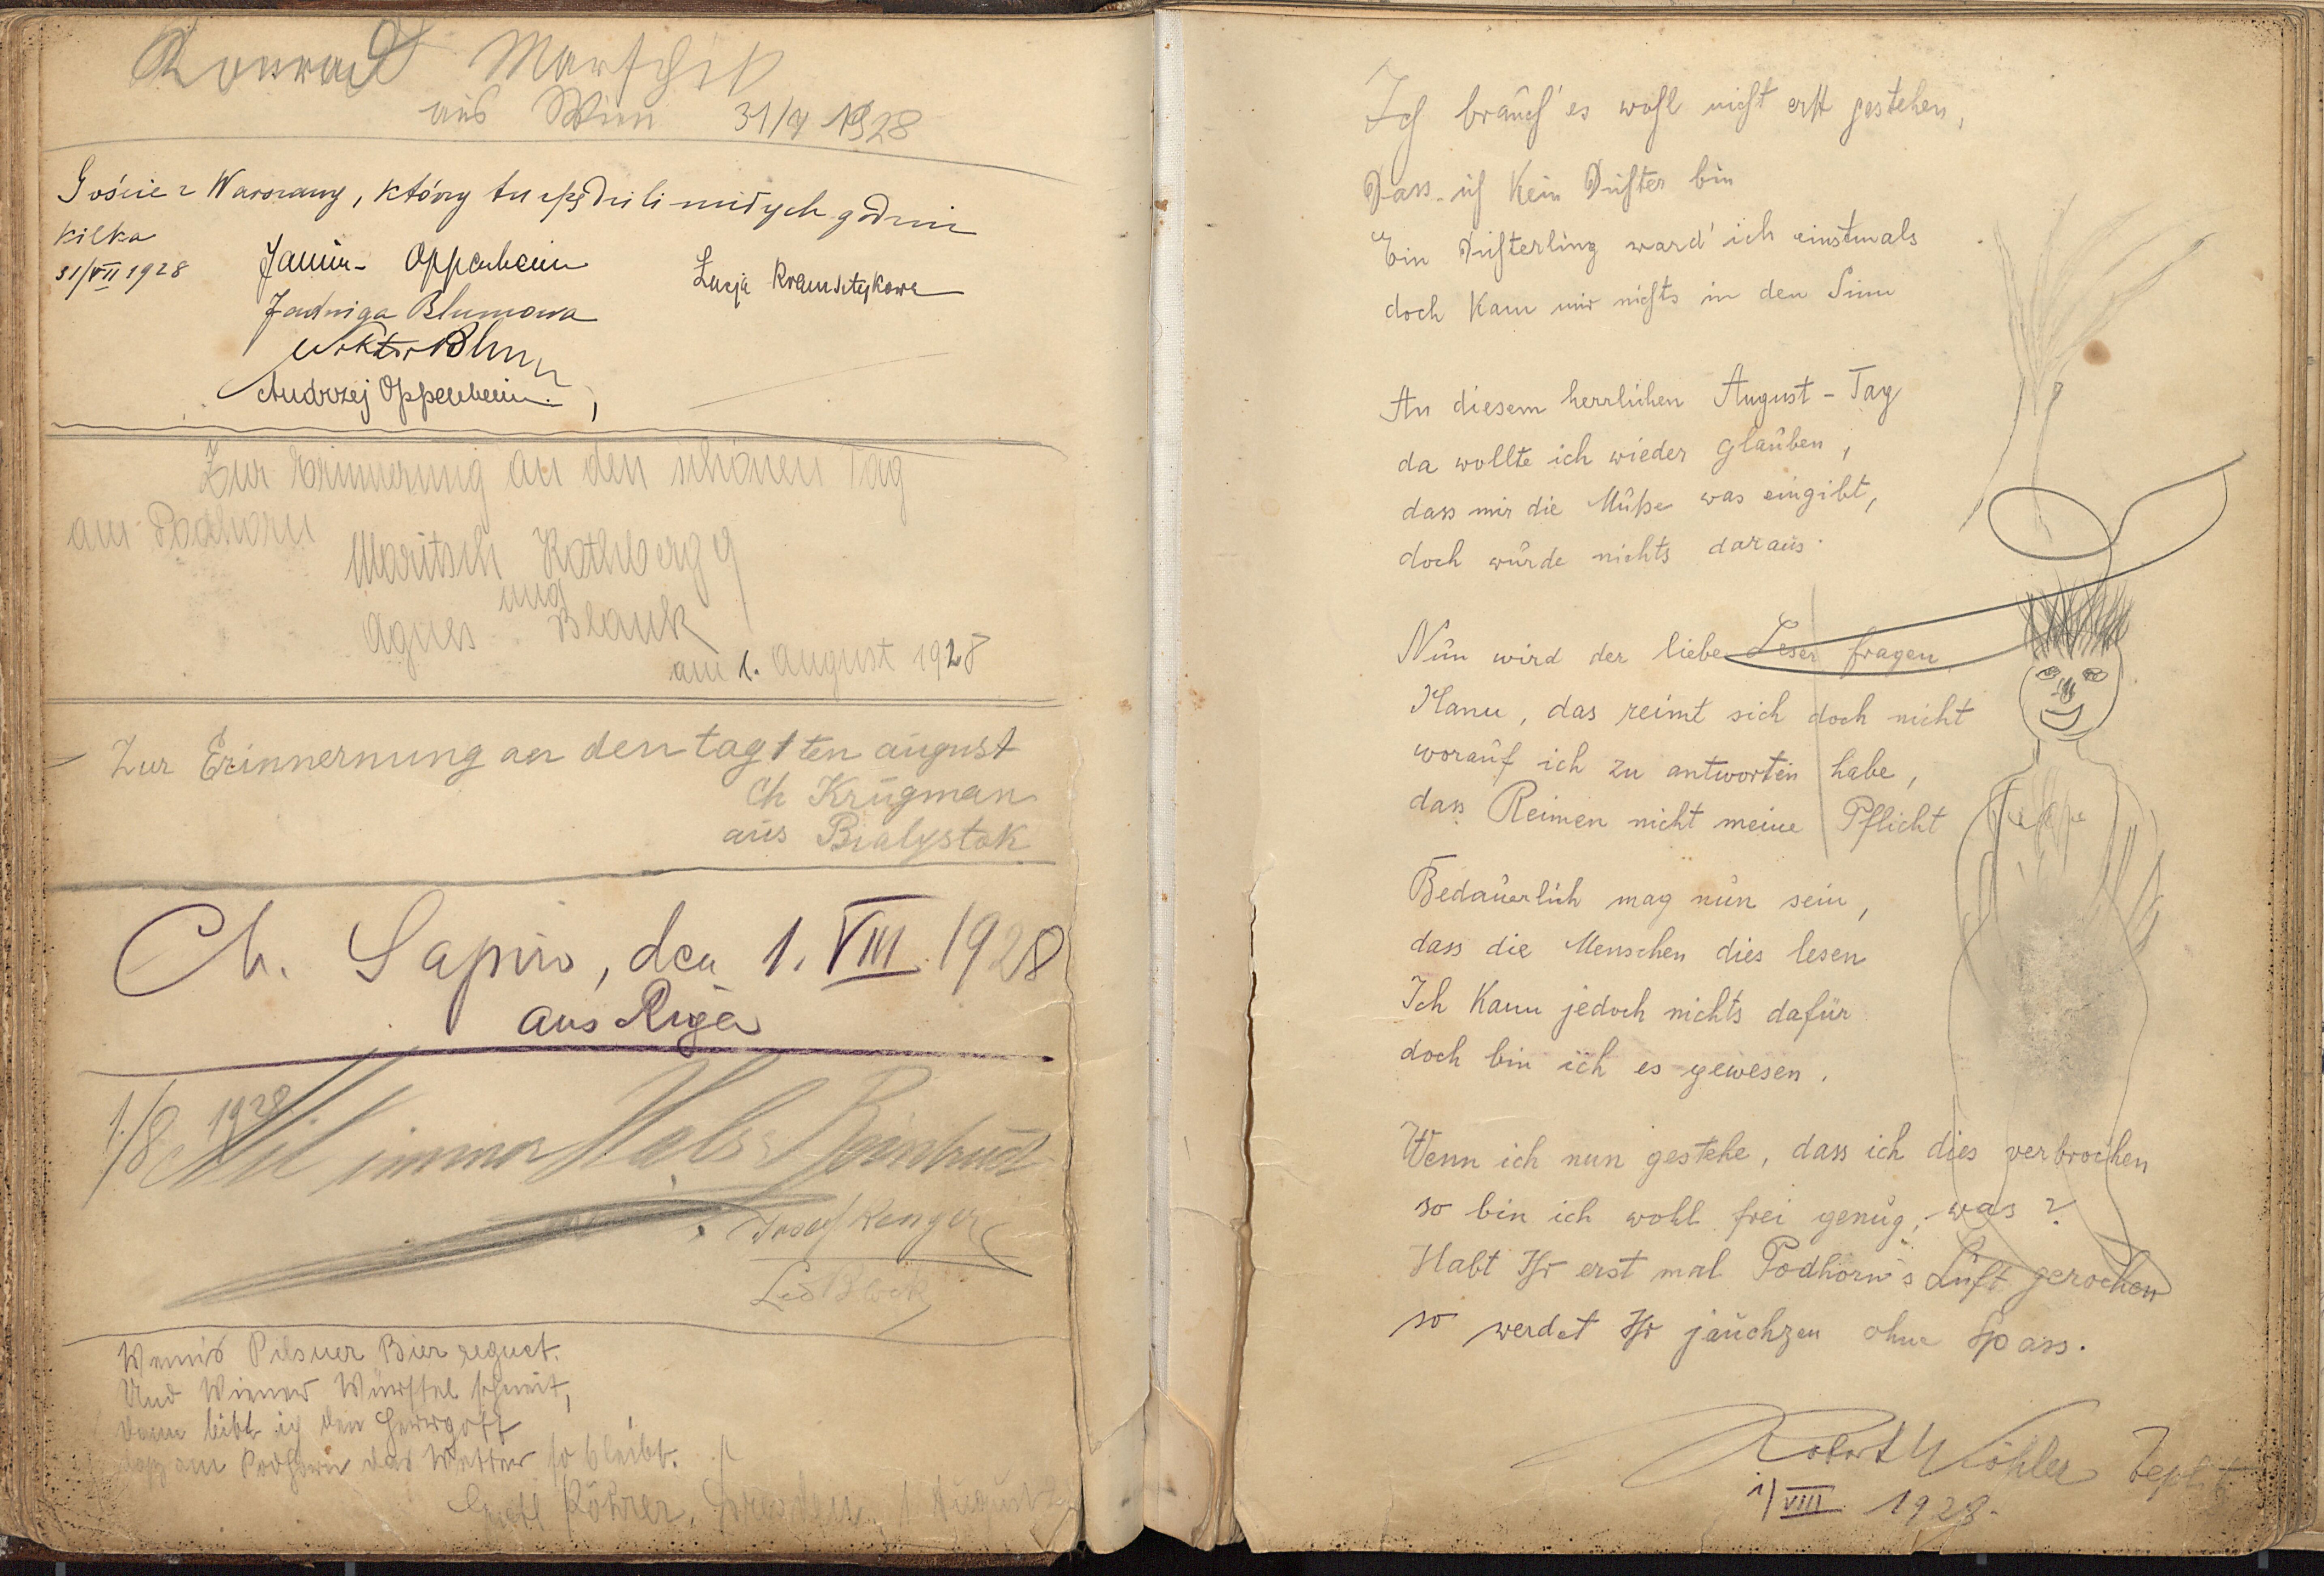 Konrad Marschik
aus Wien 31/7 1928
Goście z Warszawy, którzy tu spędzili miłych godzin
kilka
31/VII 1928
Janin- Oppenheim
Łucja Kramsztykowa
Jadwiga Blumowa
Wiktor Blum
Andrzej Oppenheim.
Zur Erinnerung an den schönen Tag
am Podhorn
Moritsch Rothberg
und
Agnes Blank
am 1. August 1928
Zur Erinnernung an den tag 1ten august
Ch Krugman
aus Bialystok
Ch. Sapiro, den 1. VIII. 1928
aus Riga
1./8 1928
Mit immer
Josef Renger
Leo Block
Wenns Pilsner Bier regnet.
Und Wiener Würstel schneit,
dann bitt ich den Herrgott
dass am Podhorn das Wetter so bleibt.
Röhrer, Dresden, 1 August
Ich brauch' es wohl nicht erst gestehen,
Dass ich kein Dichter bin
Ein Dichterling ward' ich einstmals
doch kam mir nichts in den Sinn
An diesem herrlichen August-Tag
da wollte ich wieder glauben,
dass mir die Muße was eingibt,
doch wurde nichts daraus.
Nun wird der liebe Leser fragen
Nanu, das reimt sich doch nicht
worauf ich zu antworten habe,
dass Reimen nicht meine Pflicht
Bedauerlich mag nun sein,
dass die Menschen dies lesen
Ich kann jedoch nichts dafür
doch bin ich es gewesen.
Wenn ich nun gestehe, dass ich dies verbrochen
so bin ich wohl frei genug, was?
Habt Ihr erst mal Podhorn's Luft gerochen
so werdet Ihr jauchzen ohne Spass.
Robert Köhler Tepl
1/VIII. 1928.